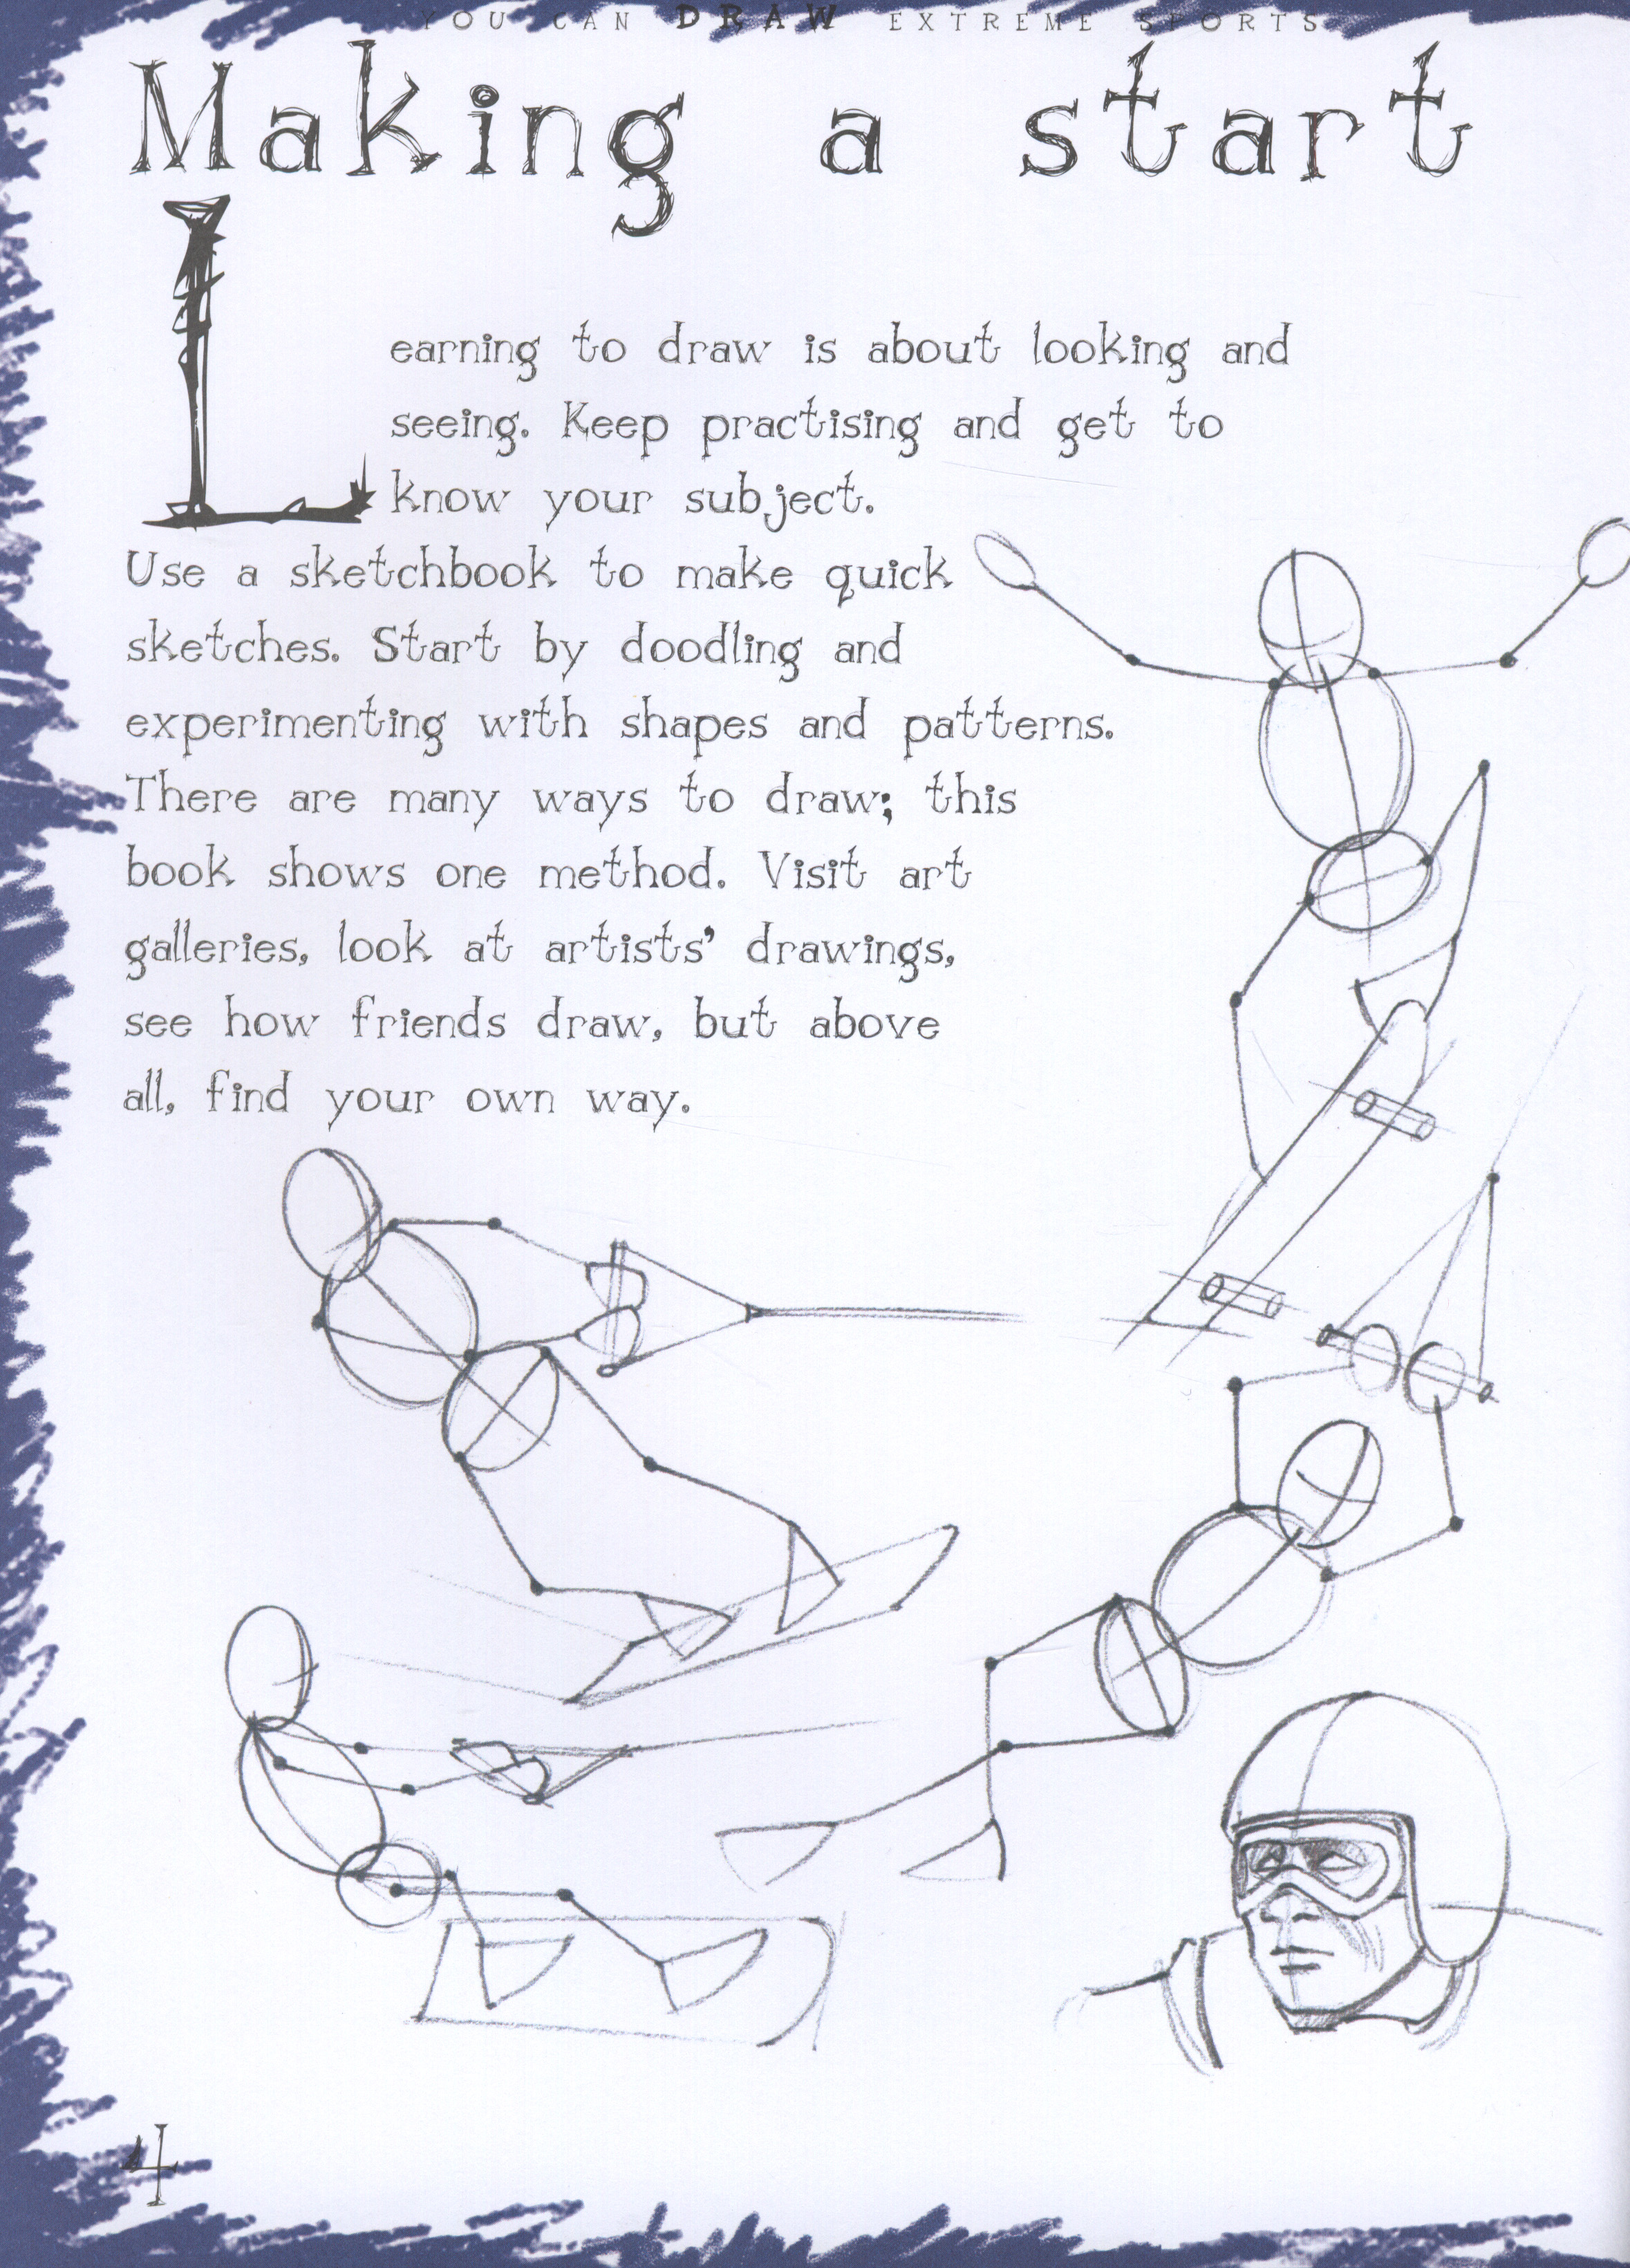 YOU CAN DRAW EXTREME SPORTS
Making a start
Learning to draw is about looking and
seeing. Keep practising and get to
know your subject.
Use a sketchbook to make quick
sketches. Start by doodling and
experimenting with shapes and patterns.
There are many ways to draw; this
book shows one method. Visit art
galleries, look at artists’ drawings,
see how friends draw, but above
all, find your own way.
4